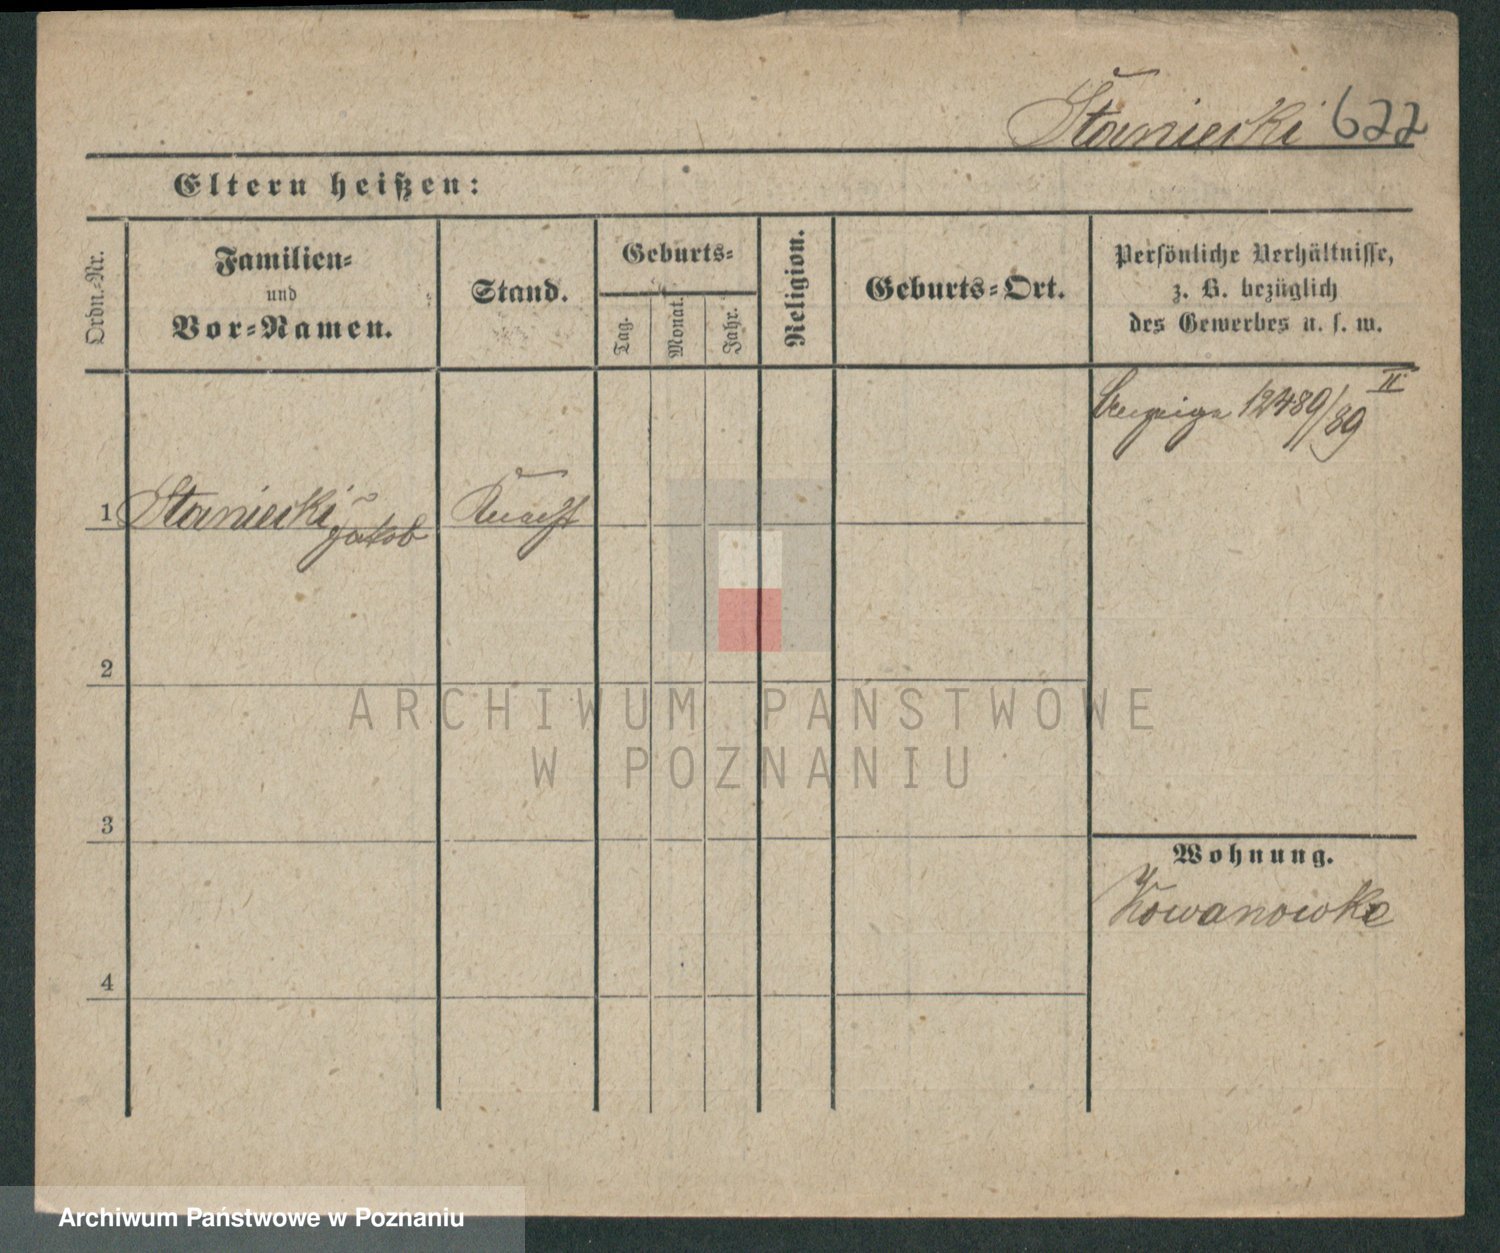 Staniecki 622
Eltern heißen:
Ordn.-Nr.
Familien-
und
Vor-Namen.
Stand.
Geburts-
Tag.
Monat.
Jahr.
Religion.
Geburts-Ort.
Persönliche Verhältnisse,
z. B. bezüglich
des Gewerbes u. s. w.
Anzeige 12489/89 II
1 Staniecki Jakob Knecht
2
3
4
Wohnung.
Kowanowko
ARCHIWUM PAŃSTWOWE
W POZNANIU
Archiwum Państwowe w Poznaniu